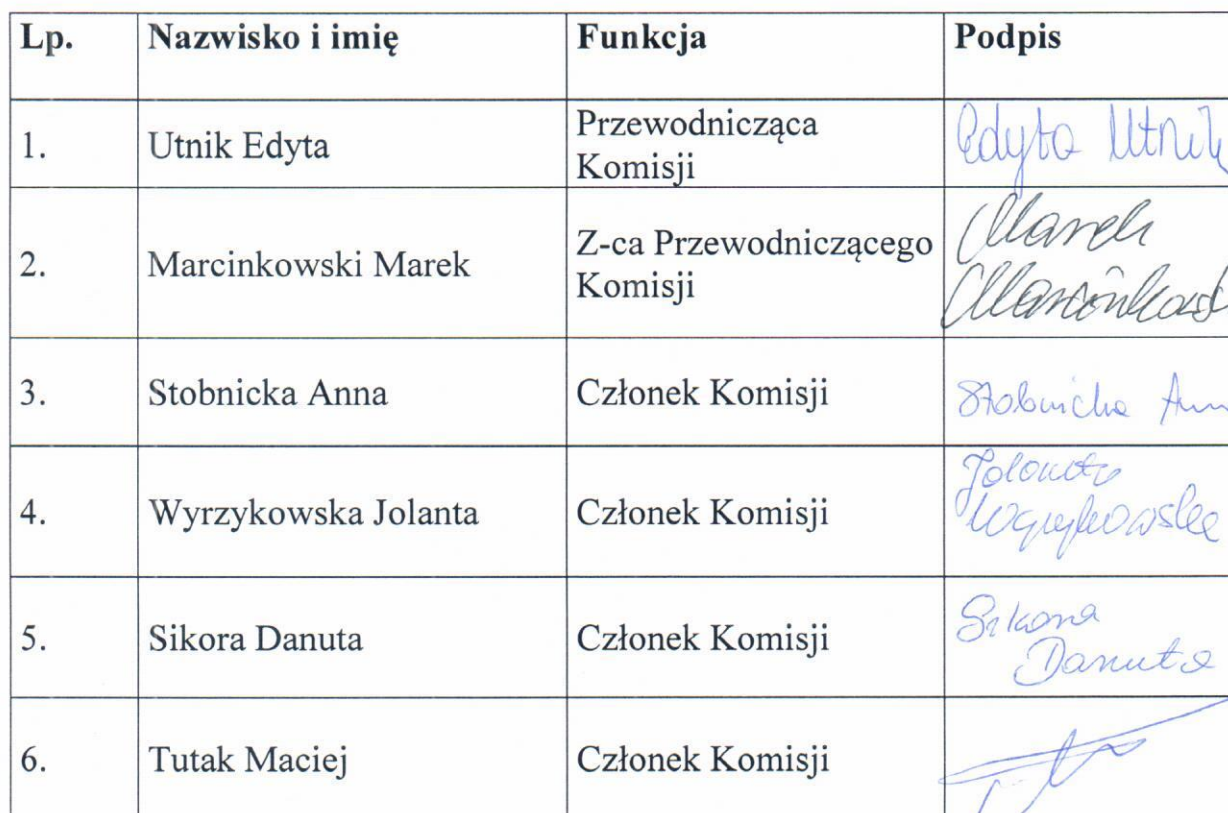 Lp. Nazwisko i imię Funkcja Podpis
1. Utnik Edyta Przewodnicząca Komisji Edyta Utnik
2. Marcinkowski Marek Z-ca Przewodniczącego Komisji Marek
3. Stobnicka Anna Członek Komisji Stobnicka
4. Wyrzykowska Jolanta Członek Komisji Jolanta Wyrzykowska
5. Sikora Danuta Członek Komisji Sikora Danuta
6. Tutak Maciej Członek Komisji